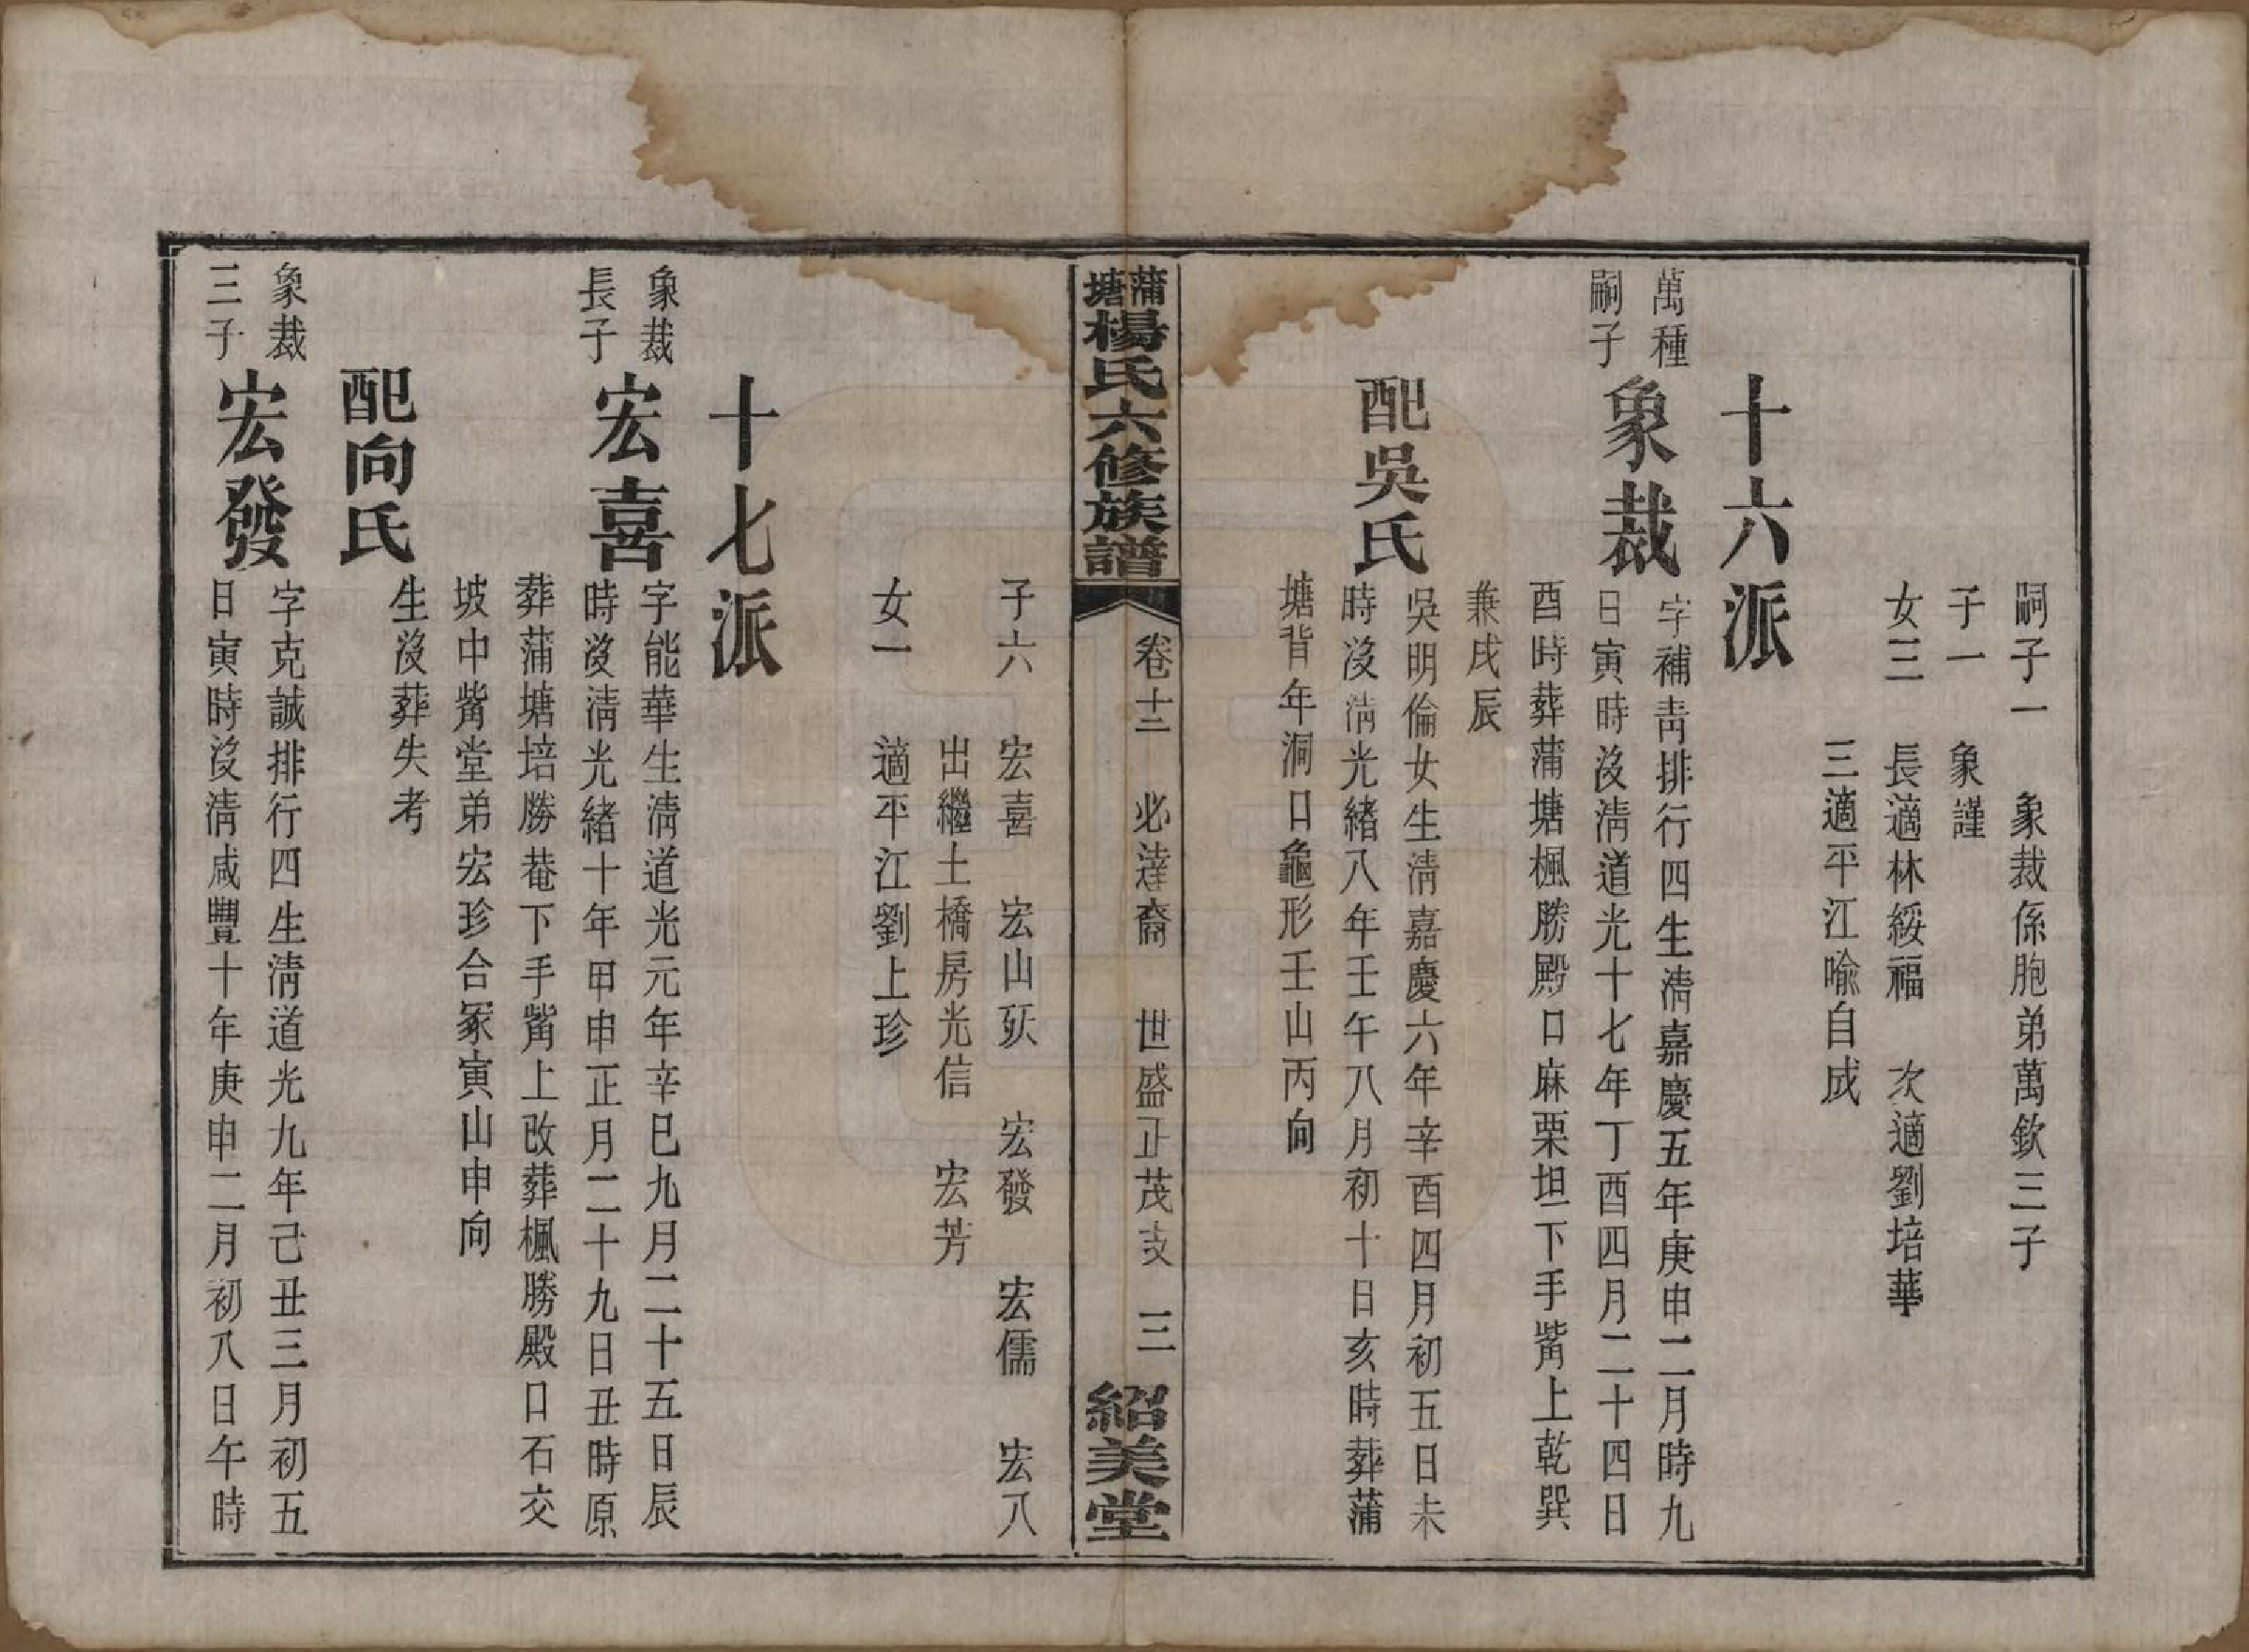 嗣子一　象裁係胞弟萬欽三子
子一　象謹
女三　長適林綏福　次適劉培華
三適平江喻自成
十六派
萬種嗣子
象裁
字補靑排行四生淸嘉慶五年庚申二月時九
日寅時沒淸道光十七年丁酉四月二十四日
酉時葬蒲塘楓勝殿口麻栗坦下手觜上乾巽
兼戌辰
配吳氏
吳明倫女生淸嘉慶六年辛酉四月初五日未
時沒淸光緒八年壬午八月初十日亥時葬蒲
塘背年洞口龜形壬山丙向
蒲塘楊氏六修族譜
卷十二　必達裔　世盛正茂支　三
紹美堂
子六　宏喜　宏山殀　宏發　宏儒　宏八
出繼土橋房光信　宏芳
女一　適平江劉上珍
十七派
象裁長子
宏喜
字能華生淸道光元年辛巳九月二十五日辰
時沒淸光緒十年甲申正月二十九日丑時原
葬蒲塘培勝菴下手觜上改葬楓勝殿口石交
坡中觜堂弟宏珍合冢寅山申向
配向氏
生沒葬失考
象裁三子
宏發
字克誠排行四生淸道光九年己丑三月初五
日寅時沒淸咸豐十年庚申二月初八日午時